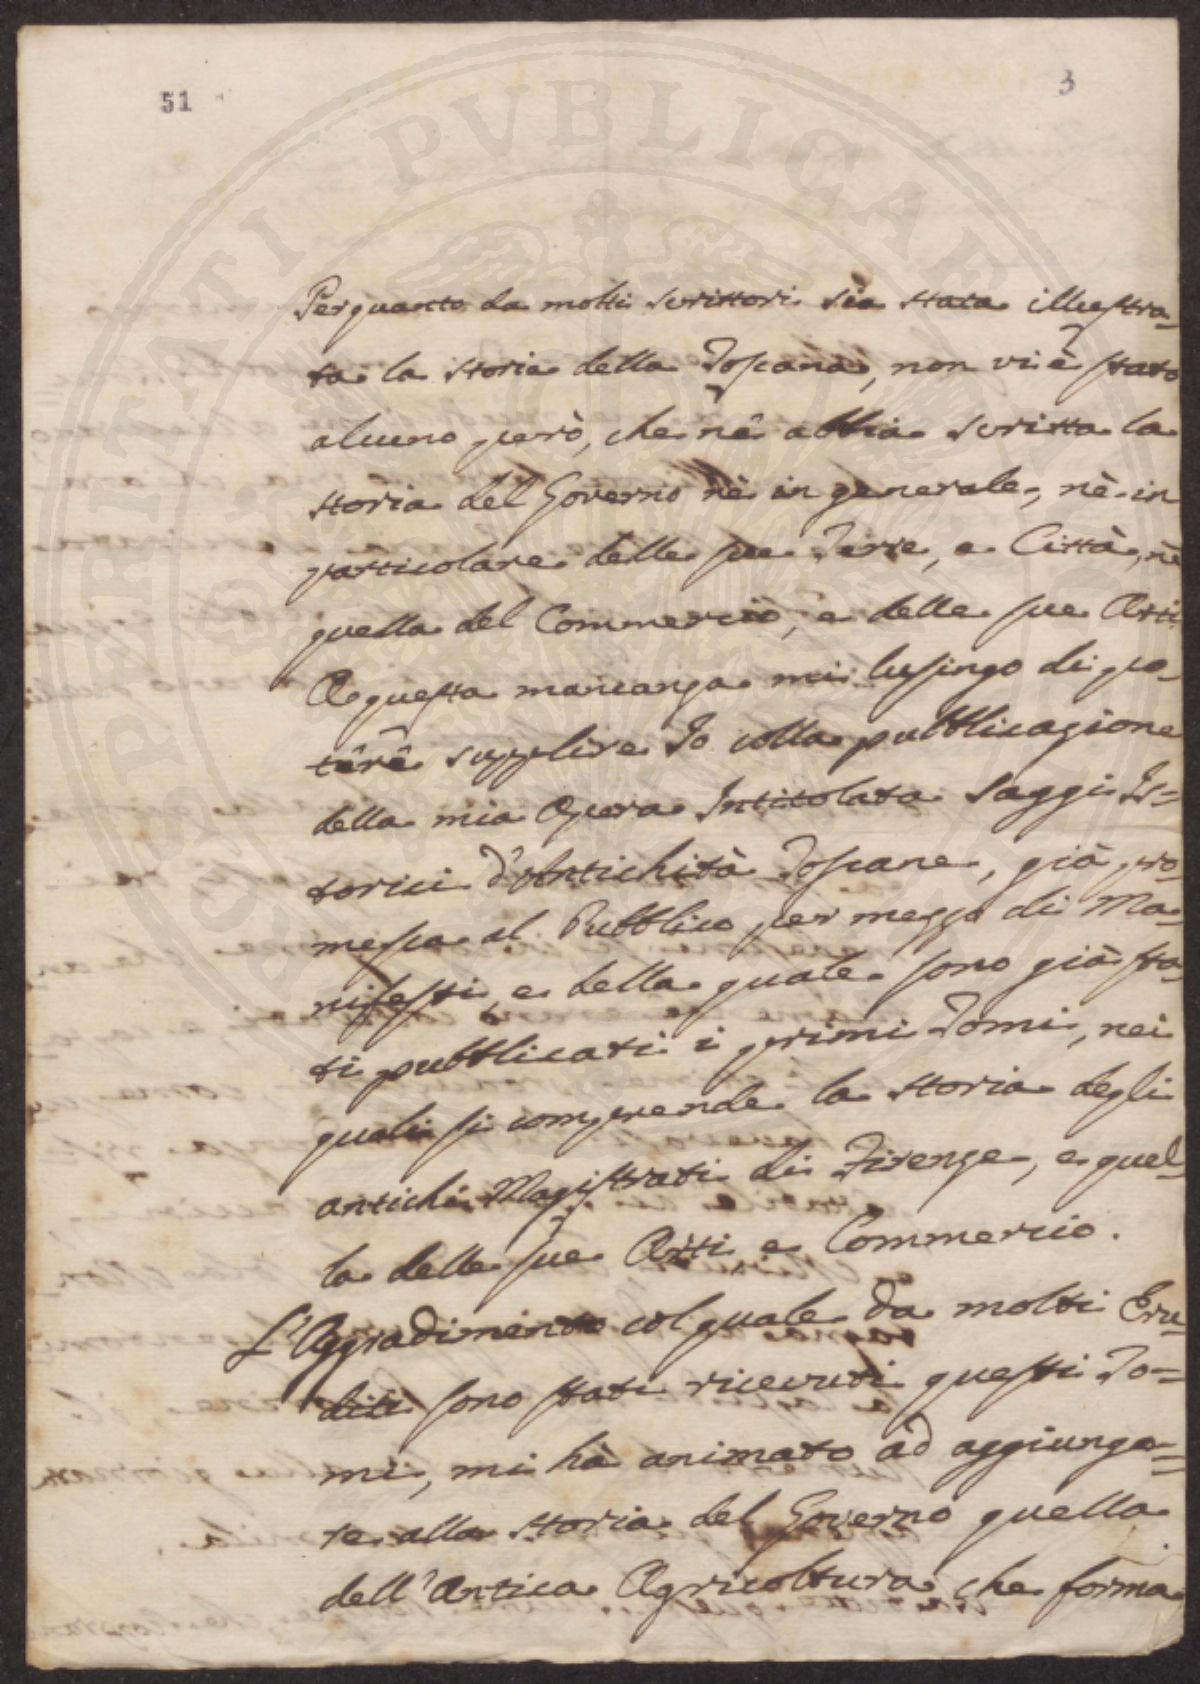 51
3
PROSPERITATI PVBLICAE
Perquanto da molti scrittori sia stata illustra-
ta la storia della Toscana, non vi è stato
alcuno però, che nè abbia scritta la
storia del Governo nè in generale, nè in
particolare delle sue Terre, e Città, nè
quella del Commercio, e delle sue Arti
A questa mancanza mi lusingo di po-
tere supplire Io colla pubblicazione
della mia Opera Intitolata Saggi Is=
torici d'Antichità Toscane, già pro-
messa al Pubblico per mezzo di Ma-
nifesti, e della quale sono già sta-
ti pubblicati i primi Tomi, nei
quali si comprende la storia degli
antichi Magistrati di Firenze, e quel-
la delle sue Arti e Commercio.
L'Aggradimento col quale da molti Eru-
diti sono stati ricevuti questi To=
mi, mi hà animato ad aggiunge=
re alla storia del Governo quella
dell'Antica Agricoltura, che forma